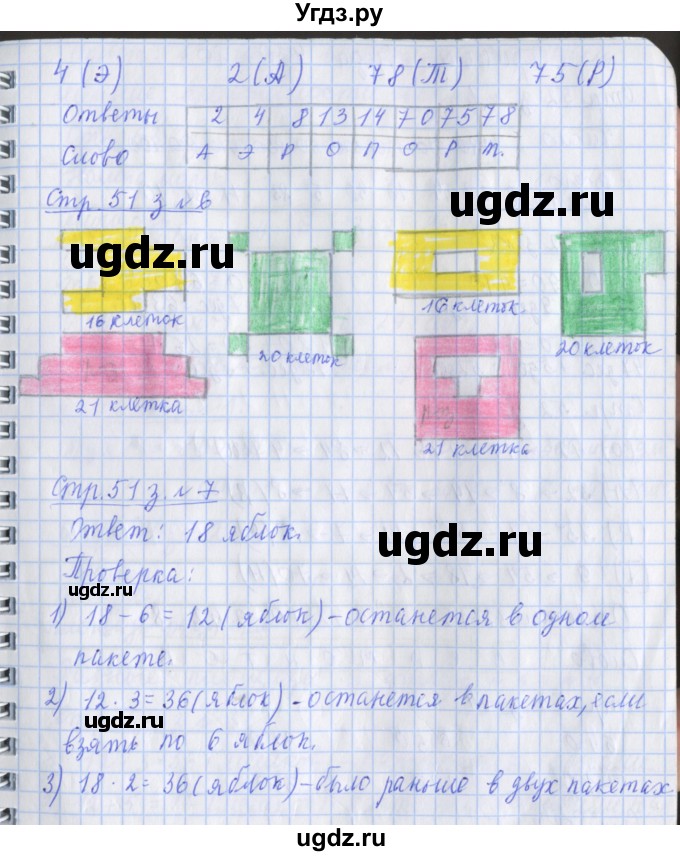 Угдз.ру
4 (Э) 2 (А) 78 (Т) 75 (Р)
Ответы 2 4 8 13 14 70 75 78
Слово А Э Р О П О Р Т.
Стр. 51 з. № 6
ugdz.ru
ugdz.ru
16 клеток
20 клеток
16 клеток.
20 клеток
21 клетка
21 клетка
Стр. 51 з. № 7
Ответ: 18 яблок.
ugdz.ru
ugdz.ru
Проверка:
1) 18 - 6 = 12 (яблок) - останется в одном
пакете.
2) 12 · 3 = 36 (яблок) - останется в пакетах, если
взять по 6 яблок.
ugdz.ru
ugdz.ru
3) 18 · 2 = 36 (яблок) - было раньше в двух пакетах
ugdz.ru